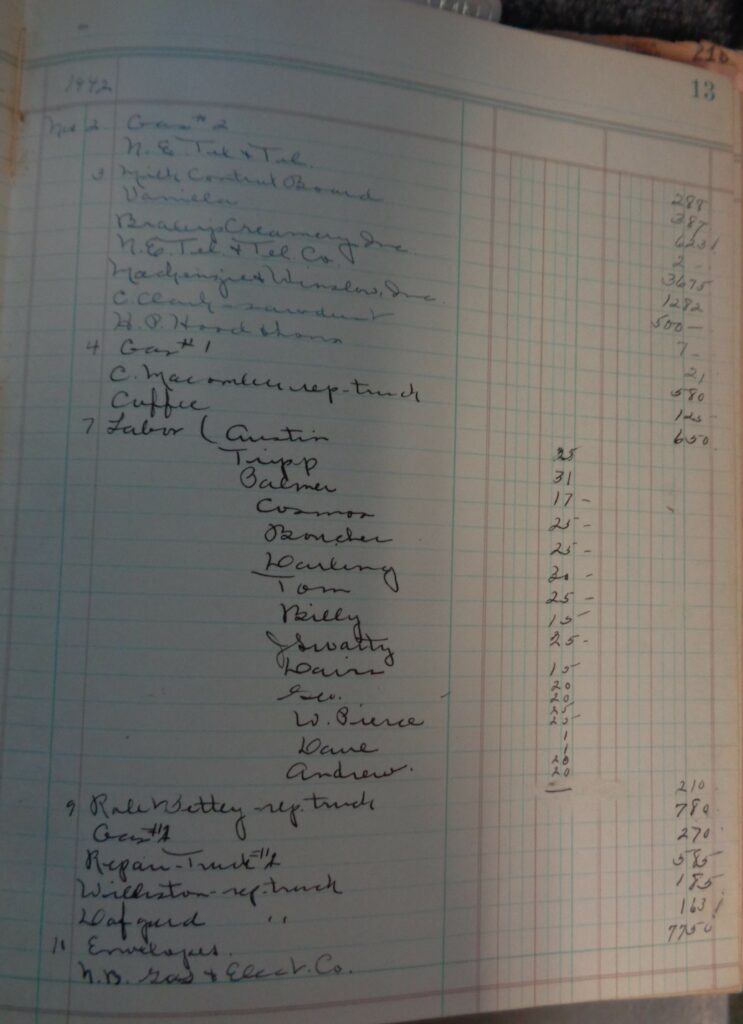 210
13
1942
2 Gas #2
N. E. Tel & Tel.
3 Milk Control Board
Vanilla 288
Creamery Inc. 387
N.E. Tel. & Tel Co. 6231
Mackenzie & Winslow, Inc. 2 -
C. Clark - sawdust 3675
H. P. Hood & Sons 1282
4 Gas #1 500 -
C. Macomber rep-truck 7 -
Coffee 21
580
125
650
7 Labor ( Austin 25
Tripp 31
Balmer 17 -
Cosmos 25 -
Boucher 25 -
Darling 30 -
Tom 25 -
Billy 15
J Swatty 25 -
15
Geo. 20
W. Pierce 25
Dave 1
Andrew. 20
210
9 rep. truck 780
Gas 270
Repair-Truck 585
Williston-rep-truck 185
" 1631
10 Envelopes. 7750
N.B. Gas & Elect. Co.